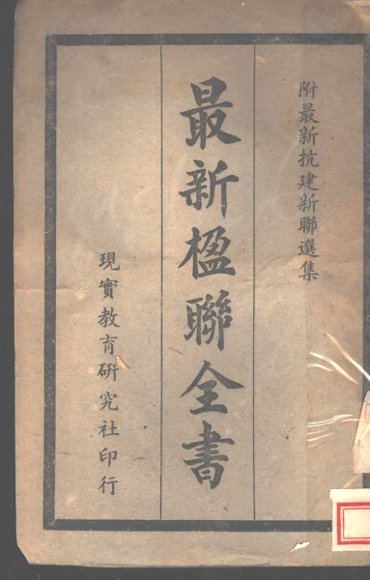 附最新抗建新聯選集
最新楹聯全書
現實教育研究社印行